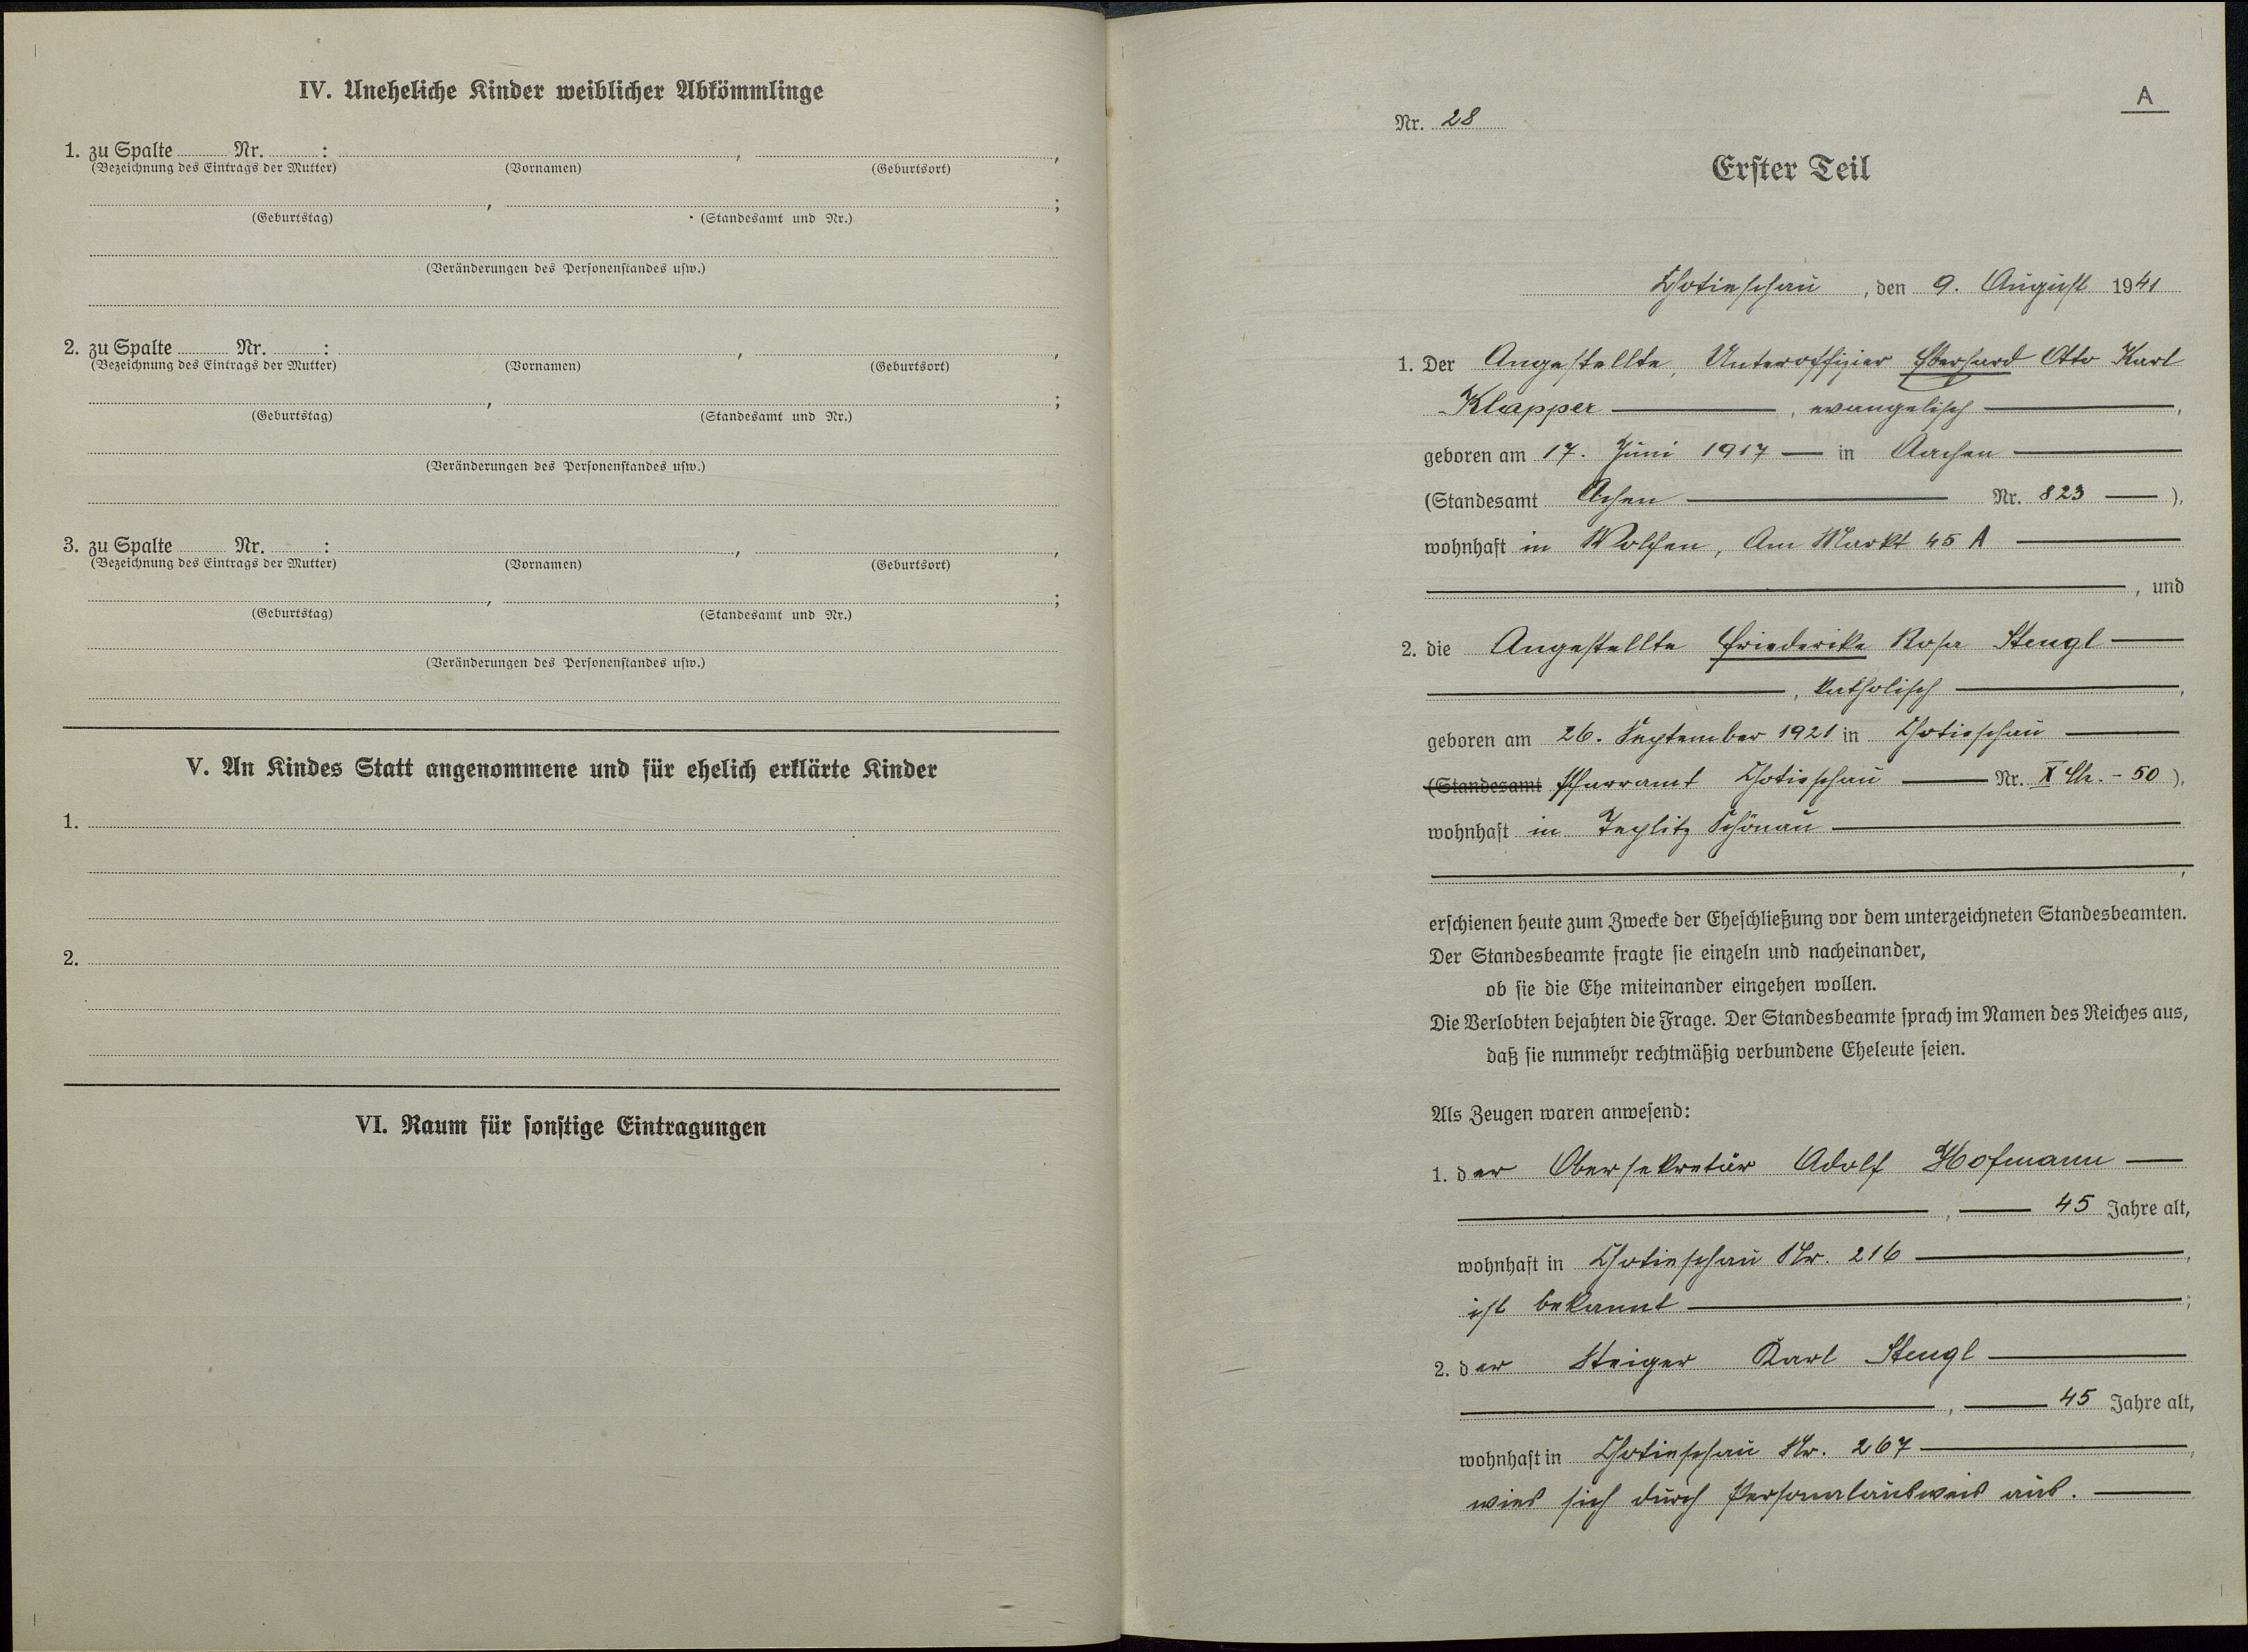 IV. Uneheliche Kinder weiblicher Abkömmlinge
1. zu Spalte Nr. : , ,
(Bezeichnung des Eintrags der Mutter) (Vornamen) (Geburtsort)
, ;
(Geburtstag) (Standesamt und Nr.)
(Veränderungen des Personenstandes usw.)
2. zu Spalte Nr. : , ,
(Bezeichnung des Eintrags der Mutter) (Vornamen) (Geburtsort)
, ;
(Geburtstag) (Standesamt und Nr.)
(Veränderungen des Personenstandes usw.)
3. zu Spalte Nr. : , ,
(Bezeichnung des Eintrags der Mutter) (Vornamen) (Geburtsort)
, ;
(Geburtstag) (Standesamt und Nr.)
(Veränderungen des Personenstandes usw.)
V. An Kindes Statt angenommene und für ehelich erklärte Kinder
1.
2.
VI. Raum für sonstige Eintragungen
A
Nr. 28
Erster Teil
Chotieschau, den 9. August 1941
1. Der Angestellte, Unteroffizier Eberhard Otto Karl
Klapper —, evangelisch —,
geboren am 17. Juni 1917 — in Aachen —
(Standesamt Achen — Nr. 823 —),
wohnhaft in Wolfen, Am Markt 45 A —
—, und
2. die Angestellte Friederike Rosa Stengl —
—, katholisch —,
geboren am 26. September 1921 in Chotieschau —
(Standesamt Pfarramt Chotieschau — Nr. X Ch. - 50),
wohnhaft in Teplitz Schönau —
—,
erschienen heute zum Zwecke der Eheschließung vor dem unterzeichneten Standesbeamten.
Der Standesbeamte fragte sie einzeln und nacheinander,
ob sie die Ehe miteinander eingehen wollen.
Die Verlobten bejahten die Frage. Der Standesbeamte sprach im Namen des Reiches aus,
daß sie nunmehr rechtmäßig verbundene Eheleute seien.
Als Zeugen waren anwesend:
1. der Obersekretär Adolf Hofmann —
—, — 45 Jahre alt,
wohnhaft in Chotieschau Nr. 216 —,
ist bekannt —;
2. der Steiger Karl Stengl —
—, — 45 Jahre alt,
wohnhaft in Chotieschau Nr. 267 —,
wies sich durch Personalausweis aus. —